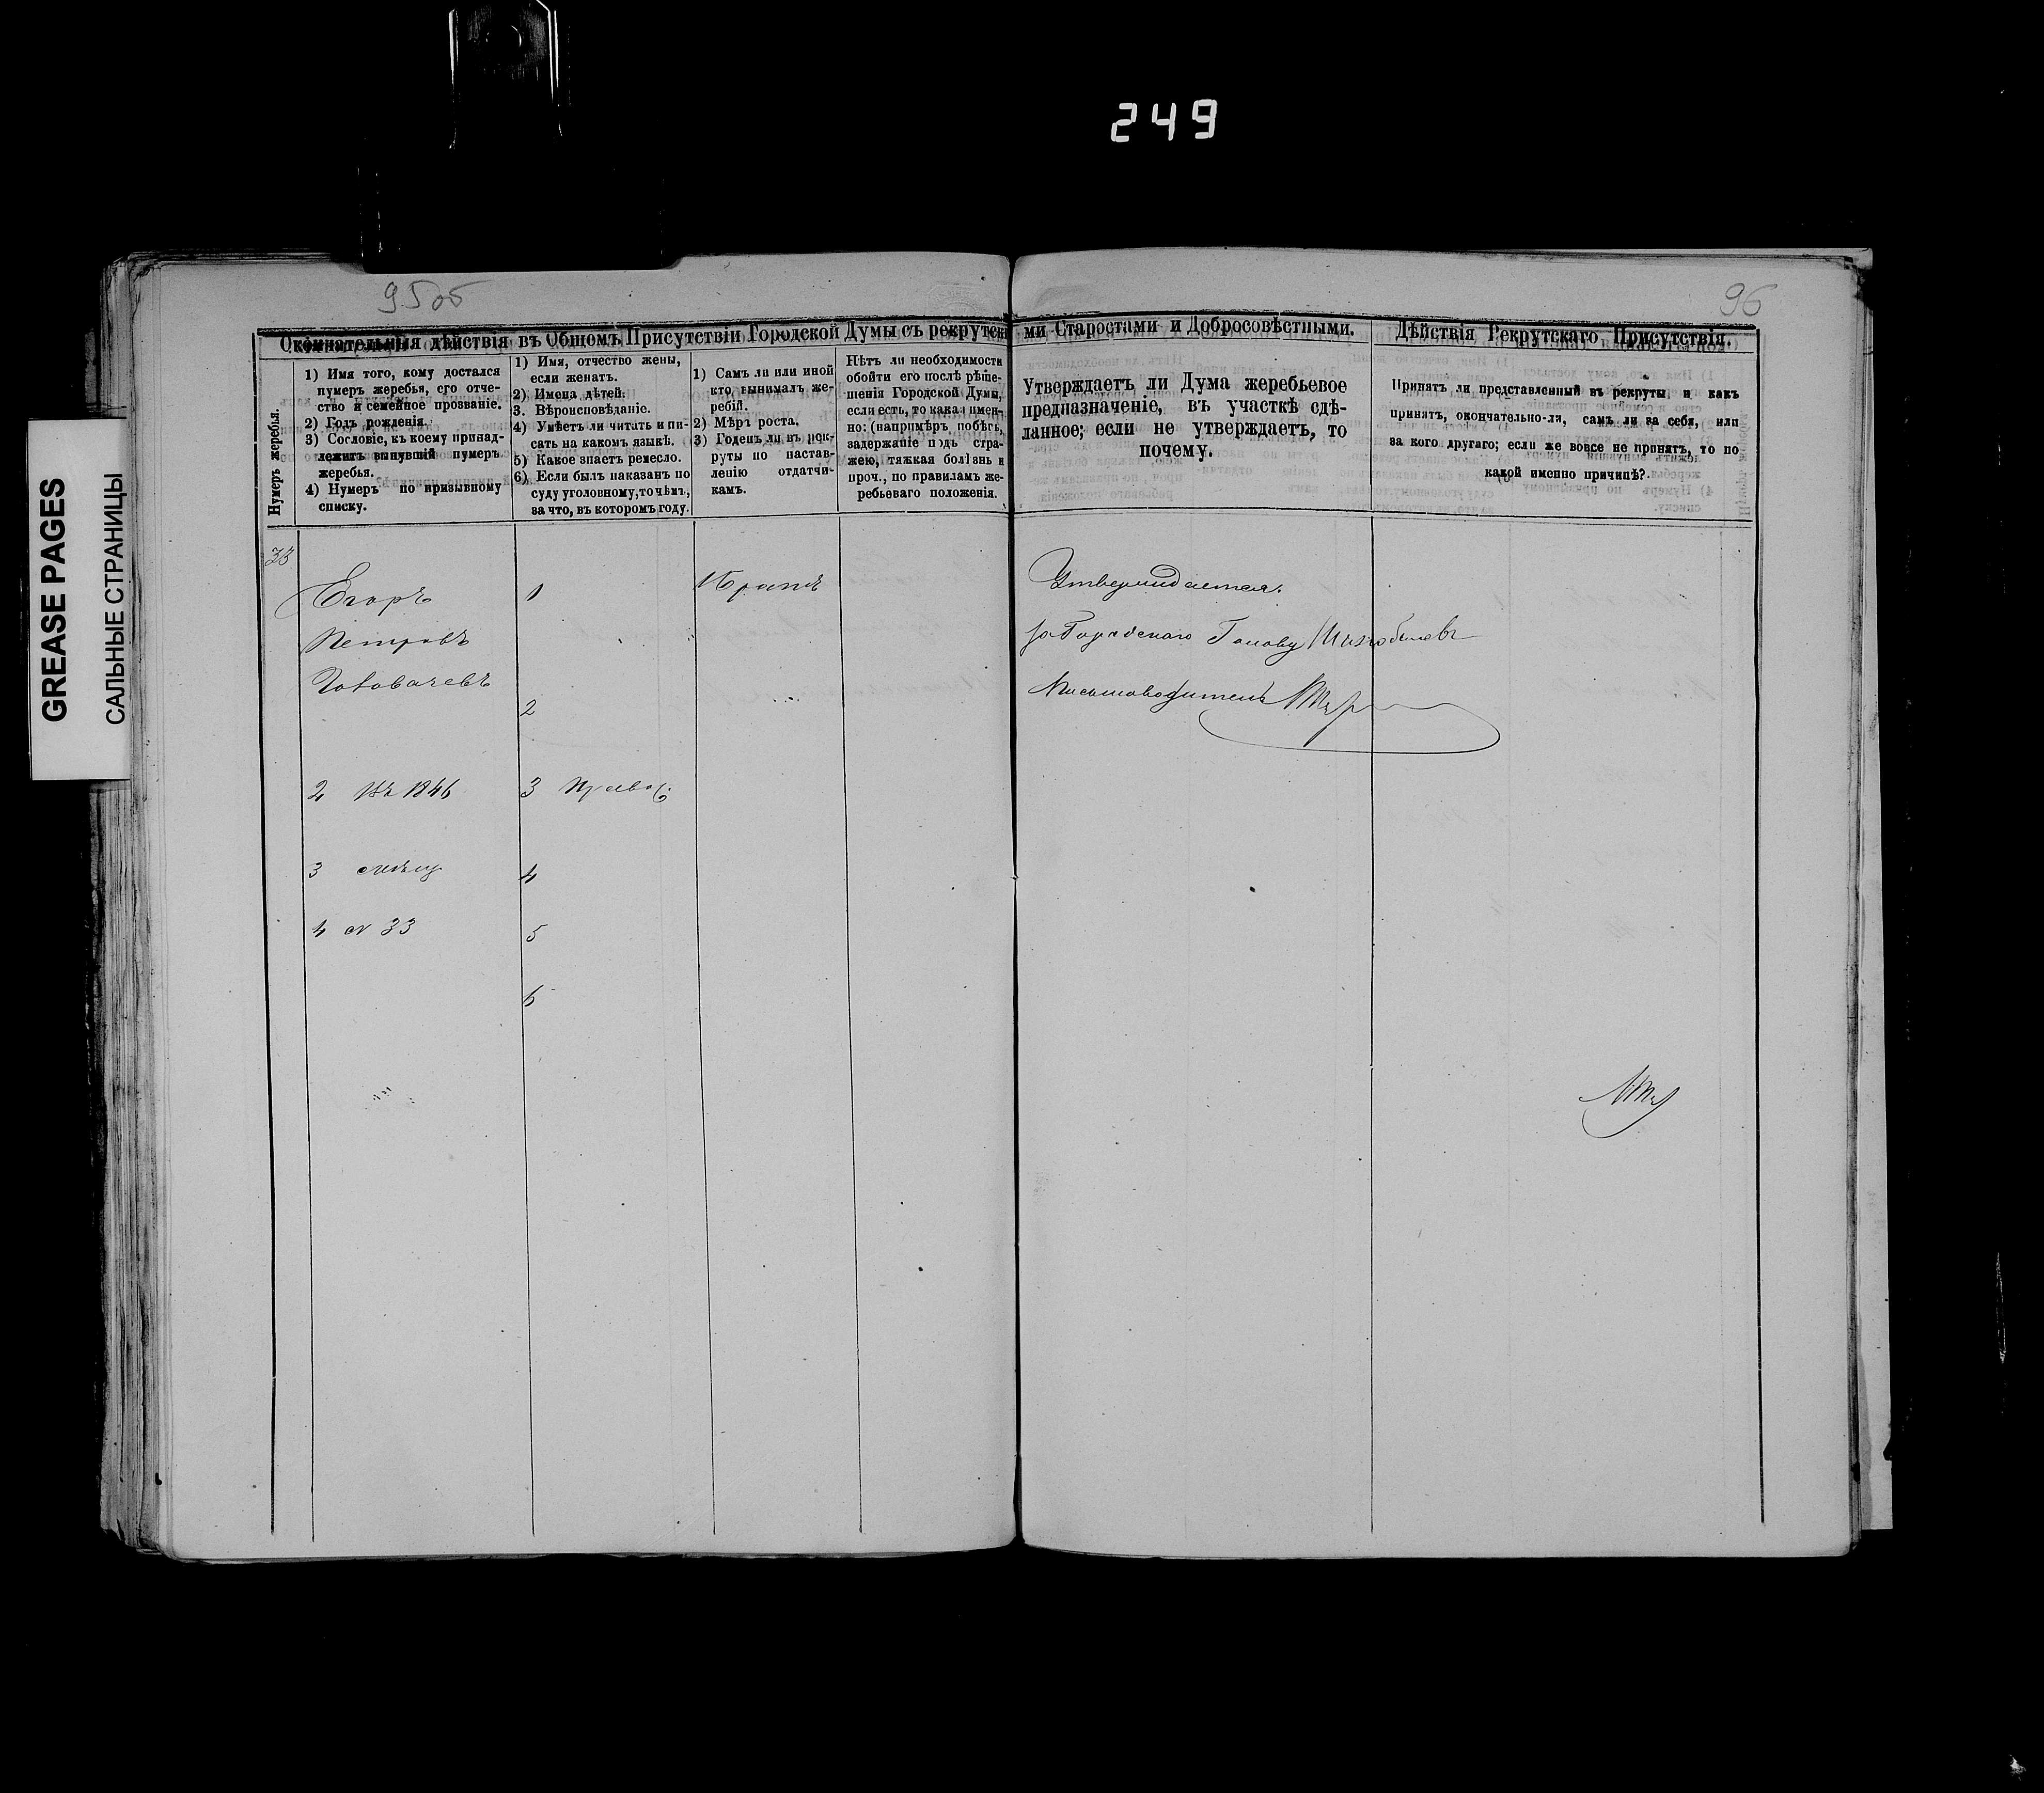 249
GREASE PAGES
САЛЬНЫЕ СТРАНИЦЫ
95об
96
Окончательныя дѣйствія въ Общемъ Присутствіи Городской Думы съ рекрутски
ми Старостами и Добросовѣстными.
Дѣйствія Рекрутскаго Присутствія.
Нумеръ жеребья.
1) Имя того, кому достался
нумеръ жеребья, его отче-
ство и семейное прозваніе.
2) Годъ рожденія.
3) Сословіе, къ коему принад-
лежитъ вынувшій нумеръ
жеребья.
4) Нумеръ по призывному
списку.
1) Имя, отчество жены,
если женатъ.
2) Имена дѣтей.
3. Вѣроисповѣданіе.
4) Умѣетъ ли читать и пи-
сать на какомъ языкѣ.
5) Какое знаетъ ремесло.
6) Если былъ наказанъ по
суду уголовному, то чѣмъ,
за что, въ которомъ году.
1) Самъ ли или иной
кто вынималъ же-
ребій.
2) Мѣръ роста.
3) Годенъ ли въ рек-
руты по настав-
ленію отдатчи-
камъ.
Нѣтъ ли необходимости
обойти его послѣ рѣше-
шенія Городской Думы,
если есть, то какая имен-
но: (напримѣръ побѣгъ,
задержаніе подъ стра-
жею, тяжкая болѣзнь и
проч., по правиламъ же-
ребьеваго положенія.
Утверждаетъ ли Дума жеребьевое
предназначеніе, въ участкѣ сдѣ-
ланное; если не утверждаетъ, то
почему.
Принятъ ли представленный въ рекруты, и какъ
принятъ, окончательно-ли, самъ ли за себя, или
за кого другаго; если же вовсе не принятъ, то по
какой именно причинѣ?
33
Егоръ
Петровъ
2 въ 1846
3
4 N 33
1
2
3 Правос.
4
5
6
1 Братъ
Утверждается.
за Городскаго Голову
Письмоводитель